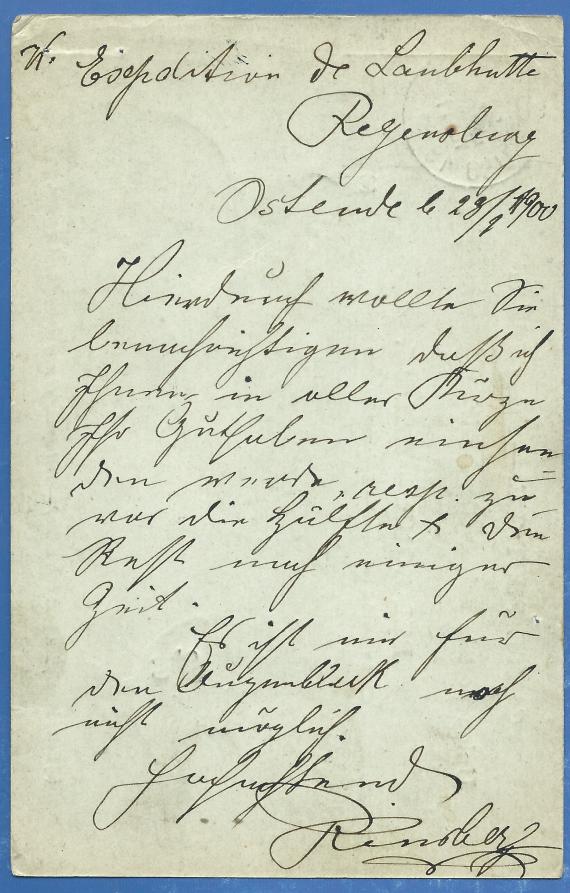 Expedition de Laubhutte
Regensburg
Ostende le 28/9 1900
Hierdurch wollte Sie
benachrichtigen daß ich
Ihnen in aller Kürze
Ihr Guthaben einsen=
den werde, resp. zu
vor die Hälfte & den
Rest nach einiger
Zeit.
Es ist mir für
den Augenblick noch
nicht möglich.
Hochachtend